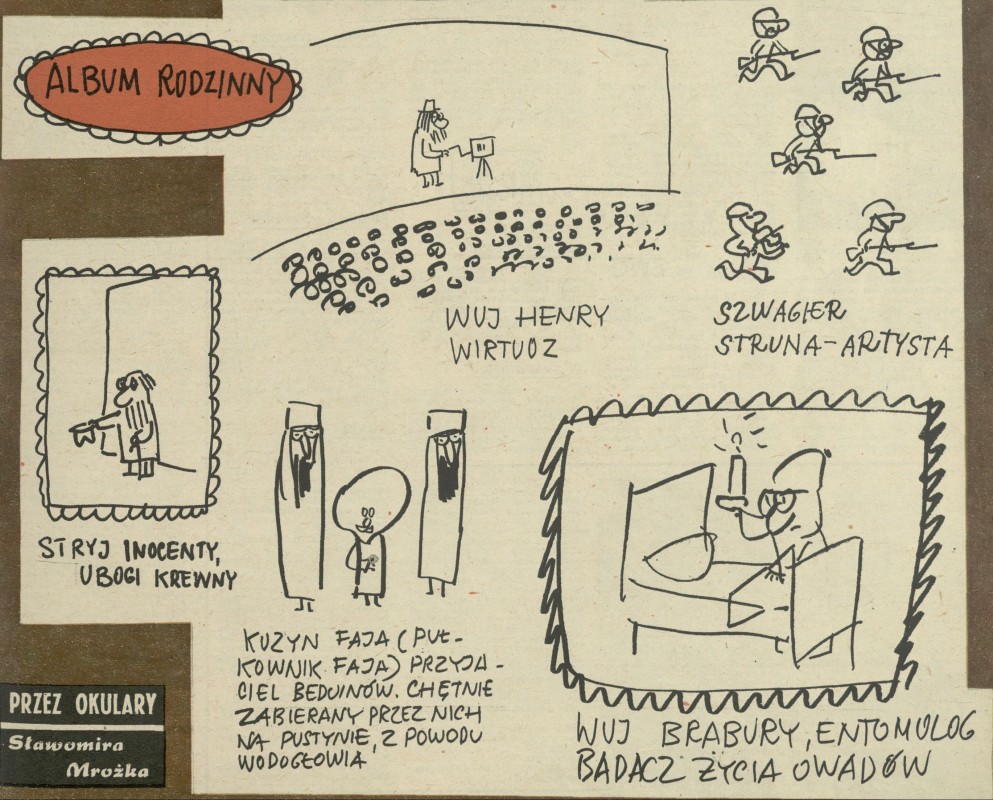 ALBUM RODZINNY
WUJ HENRY
WIRTUOZ
SZWAGIER
STRUNA-ARTYSTA
STRYJ INOCENTY,
UBOGI KREWNY
KUZYN FAJA (PUŁ-
KOWNIK FAJA) PRZYJA-
CIEL BEDUINÓW. CHĘTNIE
ZABIERANY PRZEZ NICH
NA PUSTYNIĘ, Z POWODU
WODOGŁOWIA
WUJ BRABURY, ENTOMOLOG
BADACZ ŻYCIA OWADÓW
PRZEZ OKULARY
Sławomira
Mrożka